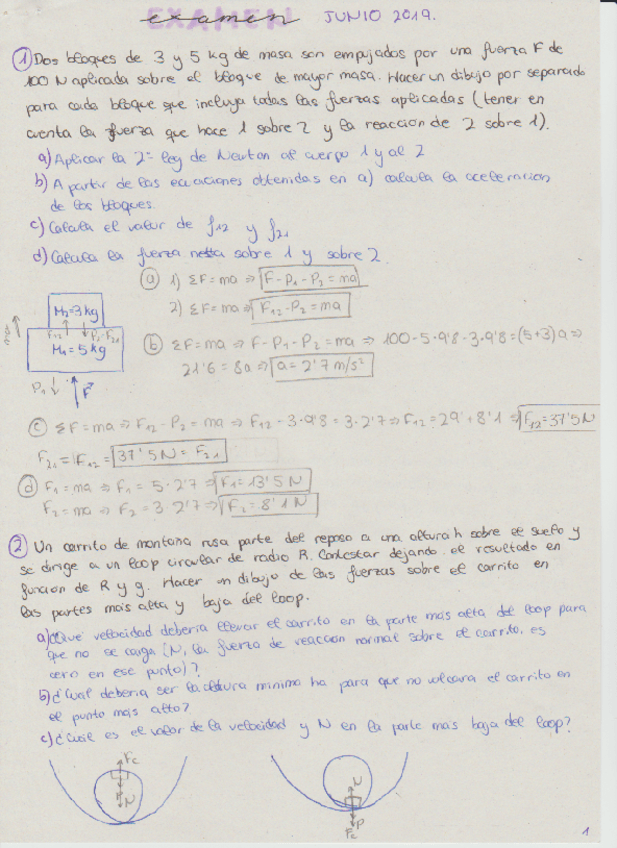 EXAMEN
examen JUNIO 2019.
① Dos bloques de 3 y 5 kg de masa son empujados por una fuerza F de
100 N aplicada sobre el bloque de mayor masa. Hacer un dibujo por separado
para cada bloque que incluya todas las fuerzas aplicadas (tener en
cuenta la fuerza que hace 1 sobre 2 y la reacción de 2 sobre 1).
a) Aplicar la 2ª ley de Newton al cuerpo 1 y al 2
b) A partir de las ecuaciones obtenidas en a) calcula la aceleración
de los bloques.
c) Calcula el valor de f12 y f21
d) Calcula la fuerza neta sobre 1 y sobre 2.
ⓐ 1) ΣF = ma ⇒ F - P1 - P2 = ma
2) ΣF = ma ⇒ F12 - P2 = ma
M2 = 3 kg
F12 P2 F21
M1 = 5 kg
P1 F
ⓑ ΣF = ma ⇒ F - P1 - P2 = ma ⇒ 100 - 5·9'8 - 3·9'8 = (5+3)a ⇒
21'6 = 8a ⇒ a = 2'7 m/s²
ⓒ ΣF = ma ⇒ F12 - P2 = ma ⇒ F12 - 3·9'8 = 3·2'7 ⇒ F12 = 29'4 + 8'1 ⇒ F12 = 37'5 N
F21 = F12 = 37'5 N = F21
ⓓ F1 = ma ⇒ F1 = 5·2'7 ⇒ F1 = 13'5 N
F2 = ma ⇒ F2 = 3·2'7 ⇒ F2 = 8'1 N
② Un carrito de montaña rusa parte del reposo a una altura h sobre el suelo y
se dirige a un loop circular de radio R. Contestar dejando el resultado en
función de R y g. Hacer un dibujo de las fuerzas sobre el carrito en
las partes más alta y baja del loop.
a) ¿Qué velocidad debería llevar el carrito en la parte más alta del loop para
que no se caiga (N, la fuerza de reacción normal sobre el carrito, es
cero en ese punto)?
b) ¿Cuál debería ser la altura mínima ha para que no volcara el carrito en
el punto más alto?
c) ¿Cuál es el valor de la velocidad y N en la parte más baja del loop?
Fc
N
N
P
Fc
1